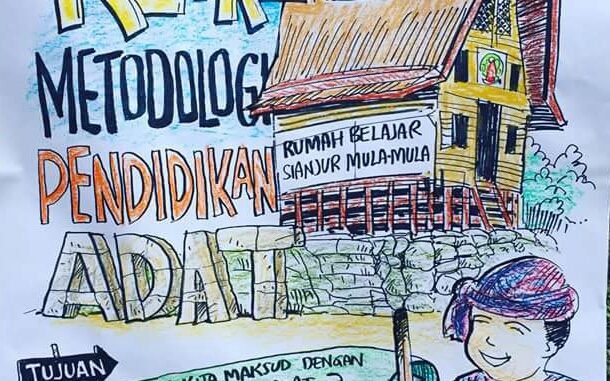 METODOLOGI
PENDIDIKAN
ADAT
RUMAH BELAJAR
SIANJUR MULA-MULA
TUJUAN
KITA MAKSUD DENGAN